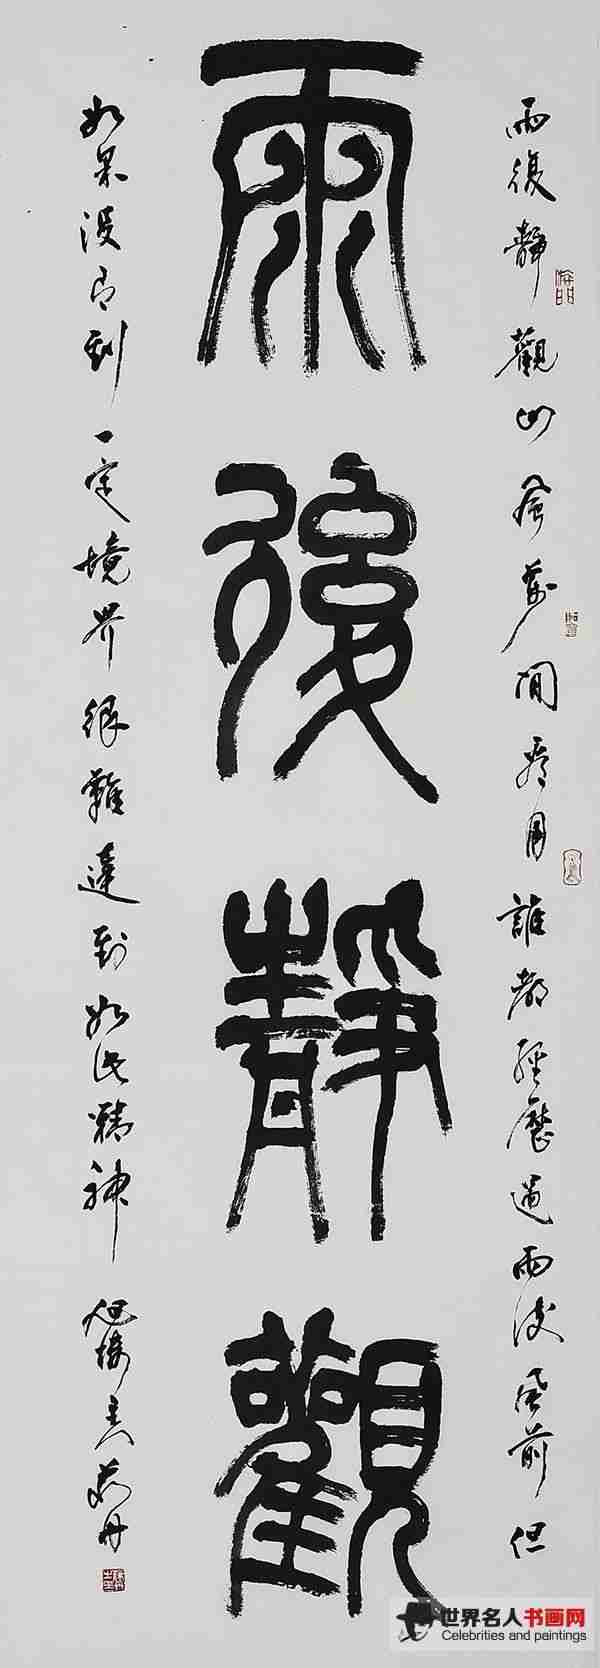 雨後靜觀
雨後靜觀山風前閒看月誰都經歷過雨後風前但
如果沒有到一定境界很難達到如此精神
世界名人书画网
Celebrities and paintings